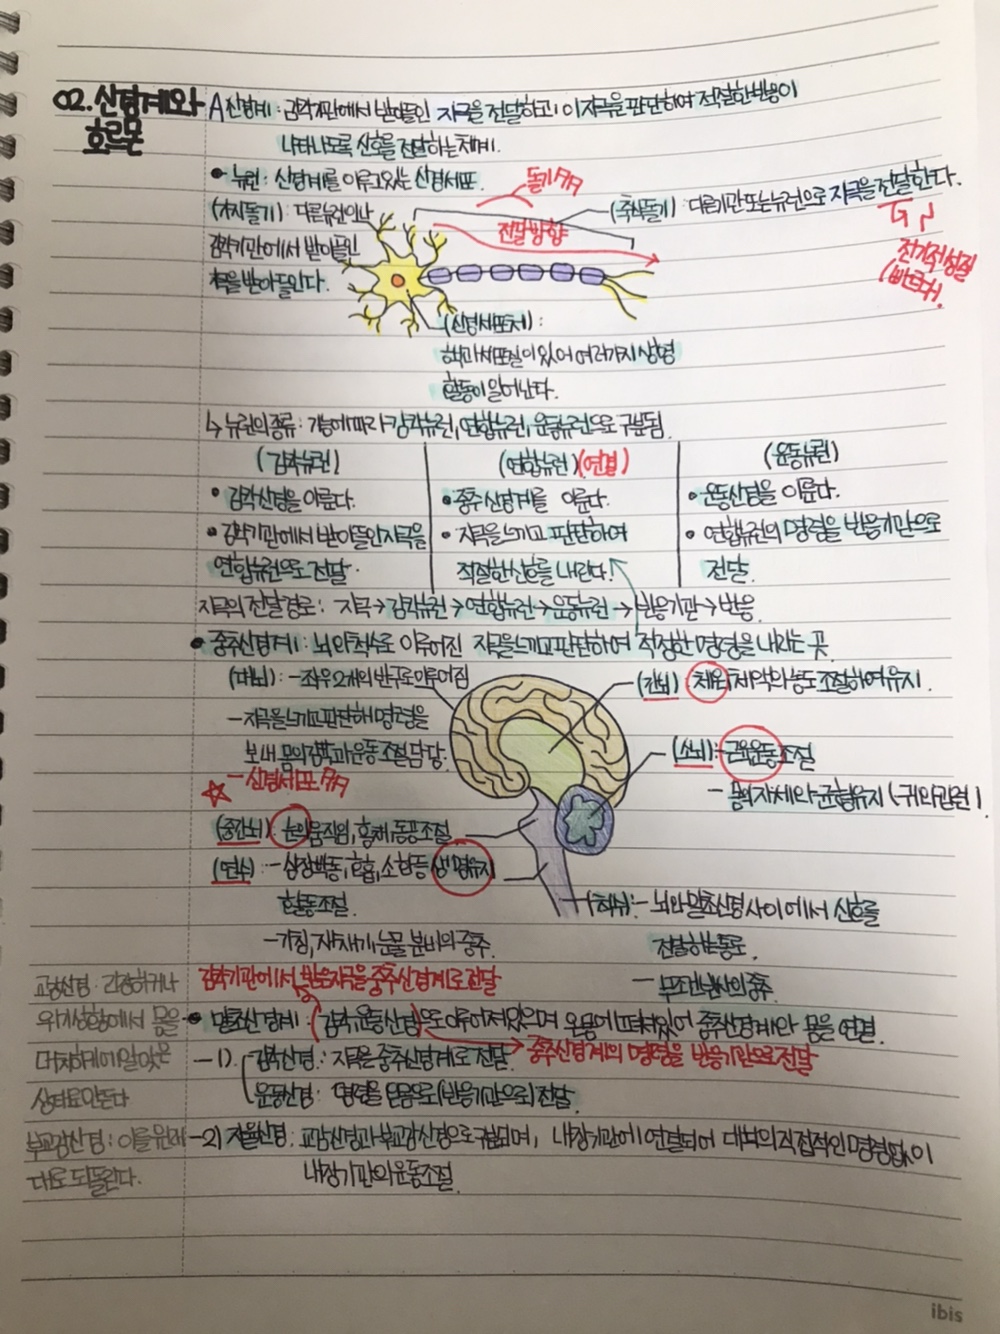 02. 신경계와
호르몬
A 신경계 : 감각기관에서 받아들인 자극을 전달하고! 이 자극을 판단하여 적절한 반응이
나타나도록 신호를 전달하는 체계.
• 뉴런 : 신경계를 이루고 있는 신경세포.
돌기
(가지돌기) : 다른 뉴런이나
감각기관에서 받아들인
자극을 받아들인다.
(축삭돌기) : 다른 기관 또는 뉴런으로 자극을 전달한다.
전달방향
전기적 성질
(빠르다).
(신경세포체) :
핵과 세포질이 있어 여러가지 생명
활동이 일어난다.
↳ 뉴런의 종류 : 기능에 따라 감각뉴런, 연합뉴런, 운동뉴런으로 구분됨.
(감각뉴런)
• 감각신경을 이룬다.
• 감각기관에서 받아들인 자극을
연합뉴런으로 전달.
(연합뉴런) (연결)
• 중추신경계를 이룬다.
• 자극을 느끼고 판단하여
적절한 신호를 내린다!
(운동뉴런)
• 운동신경을 이룬다.
• 연합뉴런의 명령을 반응기관으로
전달.
자극의 전달경로 : 자극→감각뉴런→연합뉴런→운동뉴런→반응기관→반응.
• 중추신경계 : 뇌와 척수로 이루어진 자극을 느끼고 판단하여 적정한 명령을 내리는 곳.
(대뇌) : - 좌우 2개의 반구로 이루어짐
- 자극을 느끼고 판단해 명령을
보내 몸의 감각과 운동 조절 담당.
☆ - 신경세포
(간뇌) 체온, 체액의 농도 조절하여 유지.
(소뇌) - 근육운동 조절
- 몸의 자세와 균형유지 (귀와 관련).
(중간뇌) : 눈의 움직임, 홍채, 동공조절
(연수) : - 심장박동, 호흡, 소화 등 생명유지
활동조절.
- 기침, 재채기, 눈물 분비의 중추.
(척수) : - 뇌와 말초신경 사이에서 신호를
전달하는 통로.
- 무조건 반사의 중추.
감각기관에서 받은 자극을 중추신경계로 전달
• 말초신경계 : (감각, 운동신경)으로 이루어져 있으며 온몸에 퍼져있어 중추신경계와 몸을 연결.
→ 중추신경계의 명령을 반응기관으로 전달
- 1) 감각신경 : 자극을 중추신경계로 전달.
운동신경 : 명령을 온몸으로 (반응기관으로) 전달.
- 2) 자율신경 : 교감신경과 부교감신경으로 구분되며, 내장기관에 연결되어 대뇌의 직접적인 명령없이
내장기관의 운동조절.
교감신경 : 긴장하거나
위기상황에서 몸을
대처하기에 알맞은
상태로 만든다
부교감신경 : 이를 원래
대로 되돌린다.
ibis